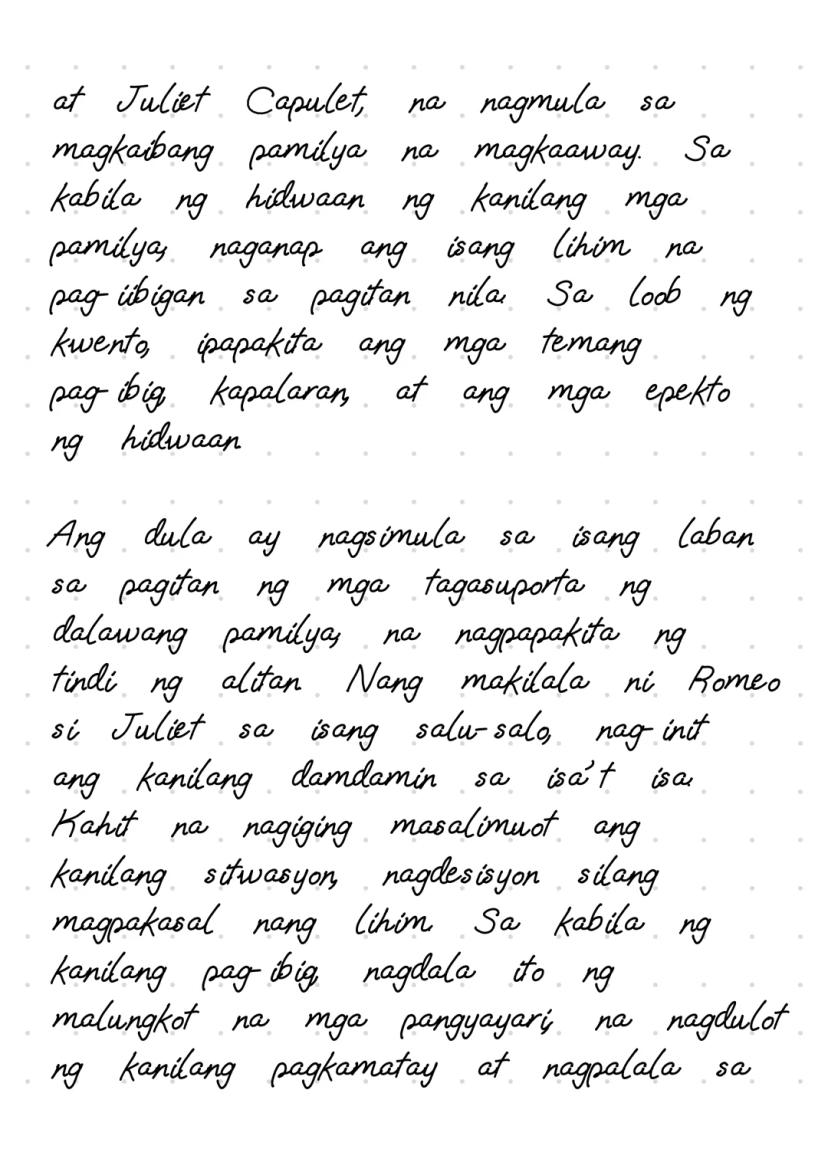 at Juliet Capulet, na nagmula sa
magkaibang pamilya na magkaaway. Sa
kabila ng hidwaan ng kanilang mga
pamilya, naganap ang isang lihim na
pag-iibigan sa pagitan nila. Sa loob ng
kwento, ipapakita ang mga temang
pag-ibig, kapalaran, at ang mga epekto
ng hidwaan.

Ang dula ay nagsimula sa isang laban
sa pagitan ng mga tagasuporta ng
dalawang pamilya, na nagpapakita ng
tindi ng alitan. Nang makilala ni Romeo
si Juliet sa isang salu-salo, nag-init
ang kanilang damdamin sa isa't isa.
Kahit na nagiging masalimuot ang
kanilang sitwasyon, nagdesisyon silang
magpakasal nang lihim. Sa kabila ng
kanilang pag-ibig, nagdala ito ng
malungkot na mga pangyayari, na nagdulot
ng kanilang pagkamatay at nagpalala sa